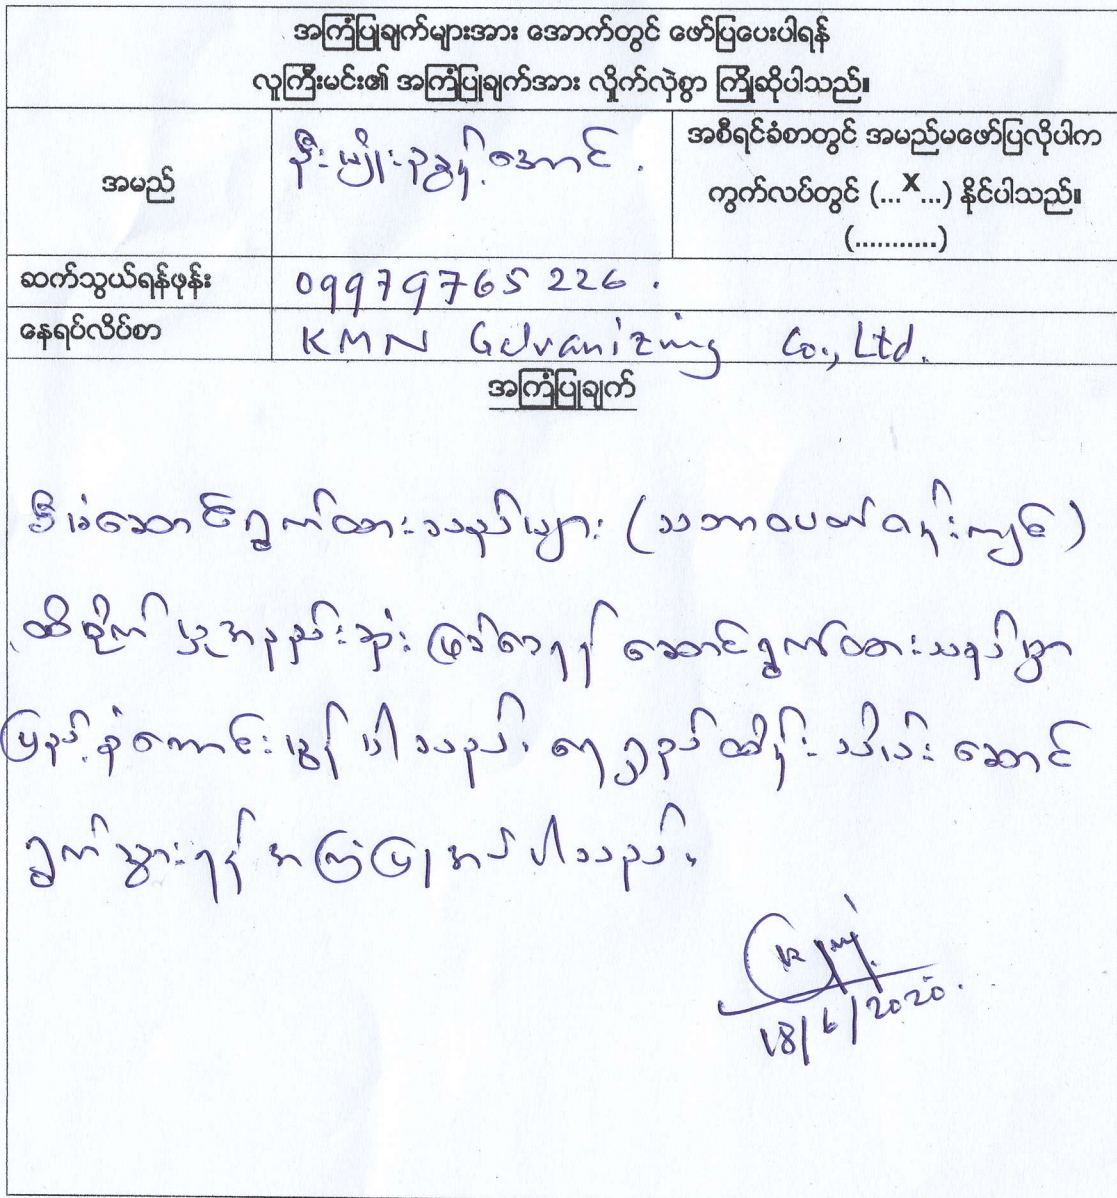 အကြံပြုချက်များအား အောက်တွင် ဖော်ပြပေးပါရန်
လူကြီးမင်း၏ အကြံပြုချက်အား လှိုက်လှဲစွာ ကြိုဆိုပါသည်။
အမည်
ဦးမျိုးညွန့်အောင်.
အစီရင်ခံစာတွင် အမည်မဖော်ပြလိုပါက
ကွက်လပ်တွင် (...x...) နိုင်ပါသည်။
(...........)
ဆက်သွယ်ရန်ဖုန်း
09979765226.
နေရပ်လိပ်စာ
KMN Galvanizing Co., Ltd.
အကြံပြုချက်
စီမံဆောင်ရွက်ထားသည်များ (သဘာဝပတ်ဝန်းကျင်)
ထိခိုက်မှုအနည်းဆုံး ဖြစ်စေရန် ဆောင်ရွက်ထားသည်မှာ
ပြည့်စုံကောင်းမွန်ပါသည်၊ ရေရှည်ထိန်းသိမ်းဆောင်
ရွက်သွားရန် အကြံပြုအပ်ပါသည်၊
18/6/2020.